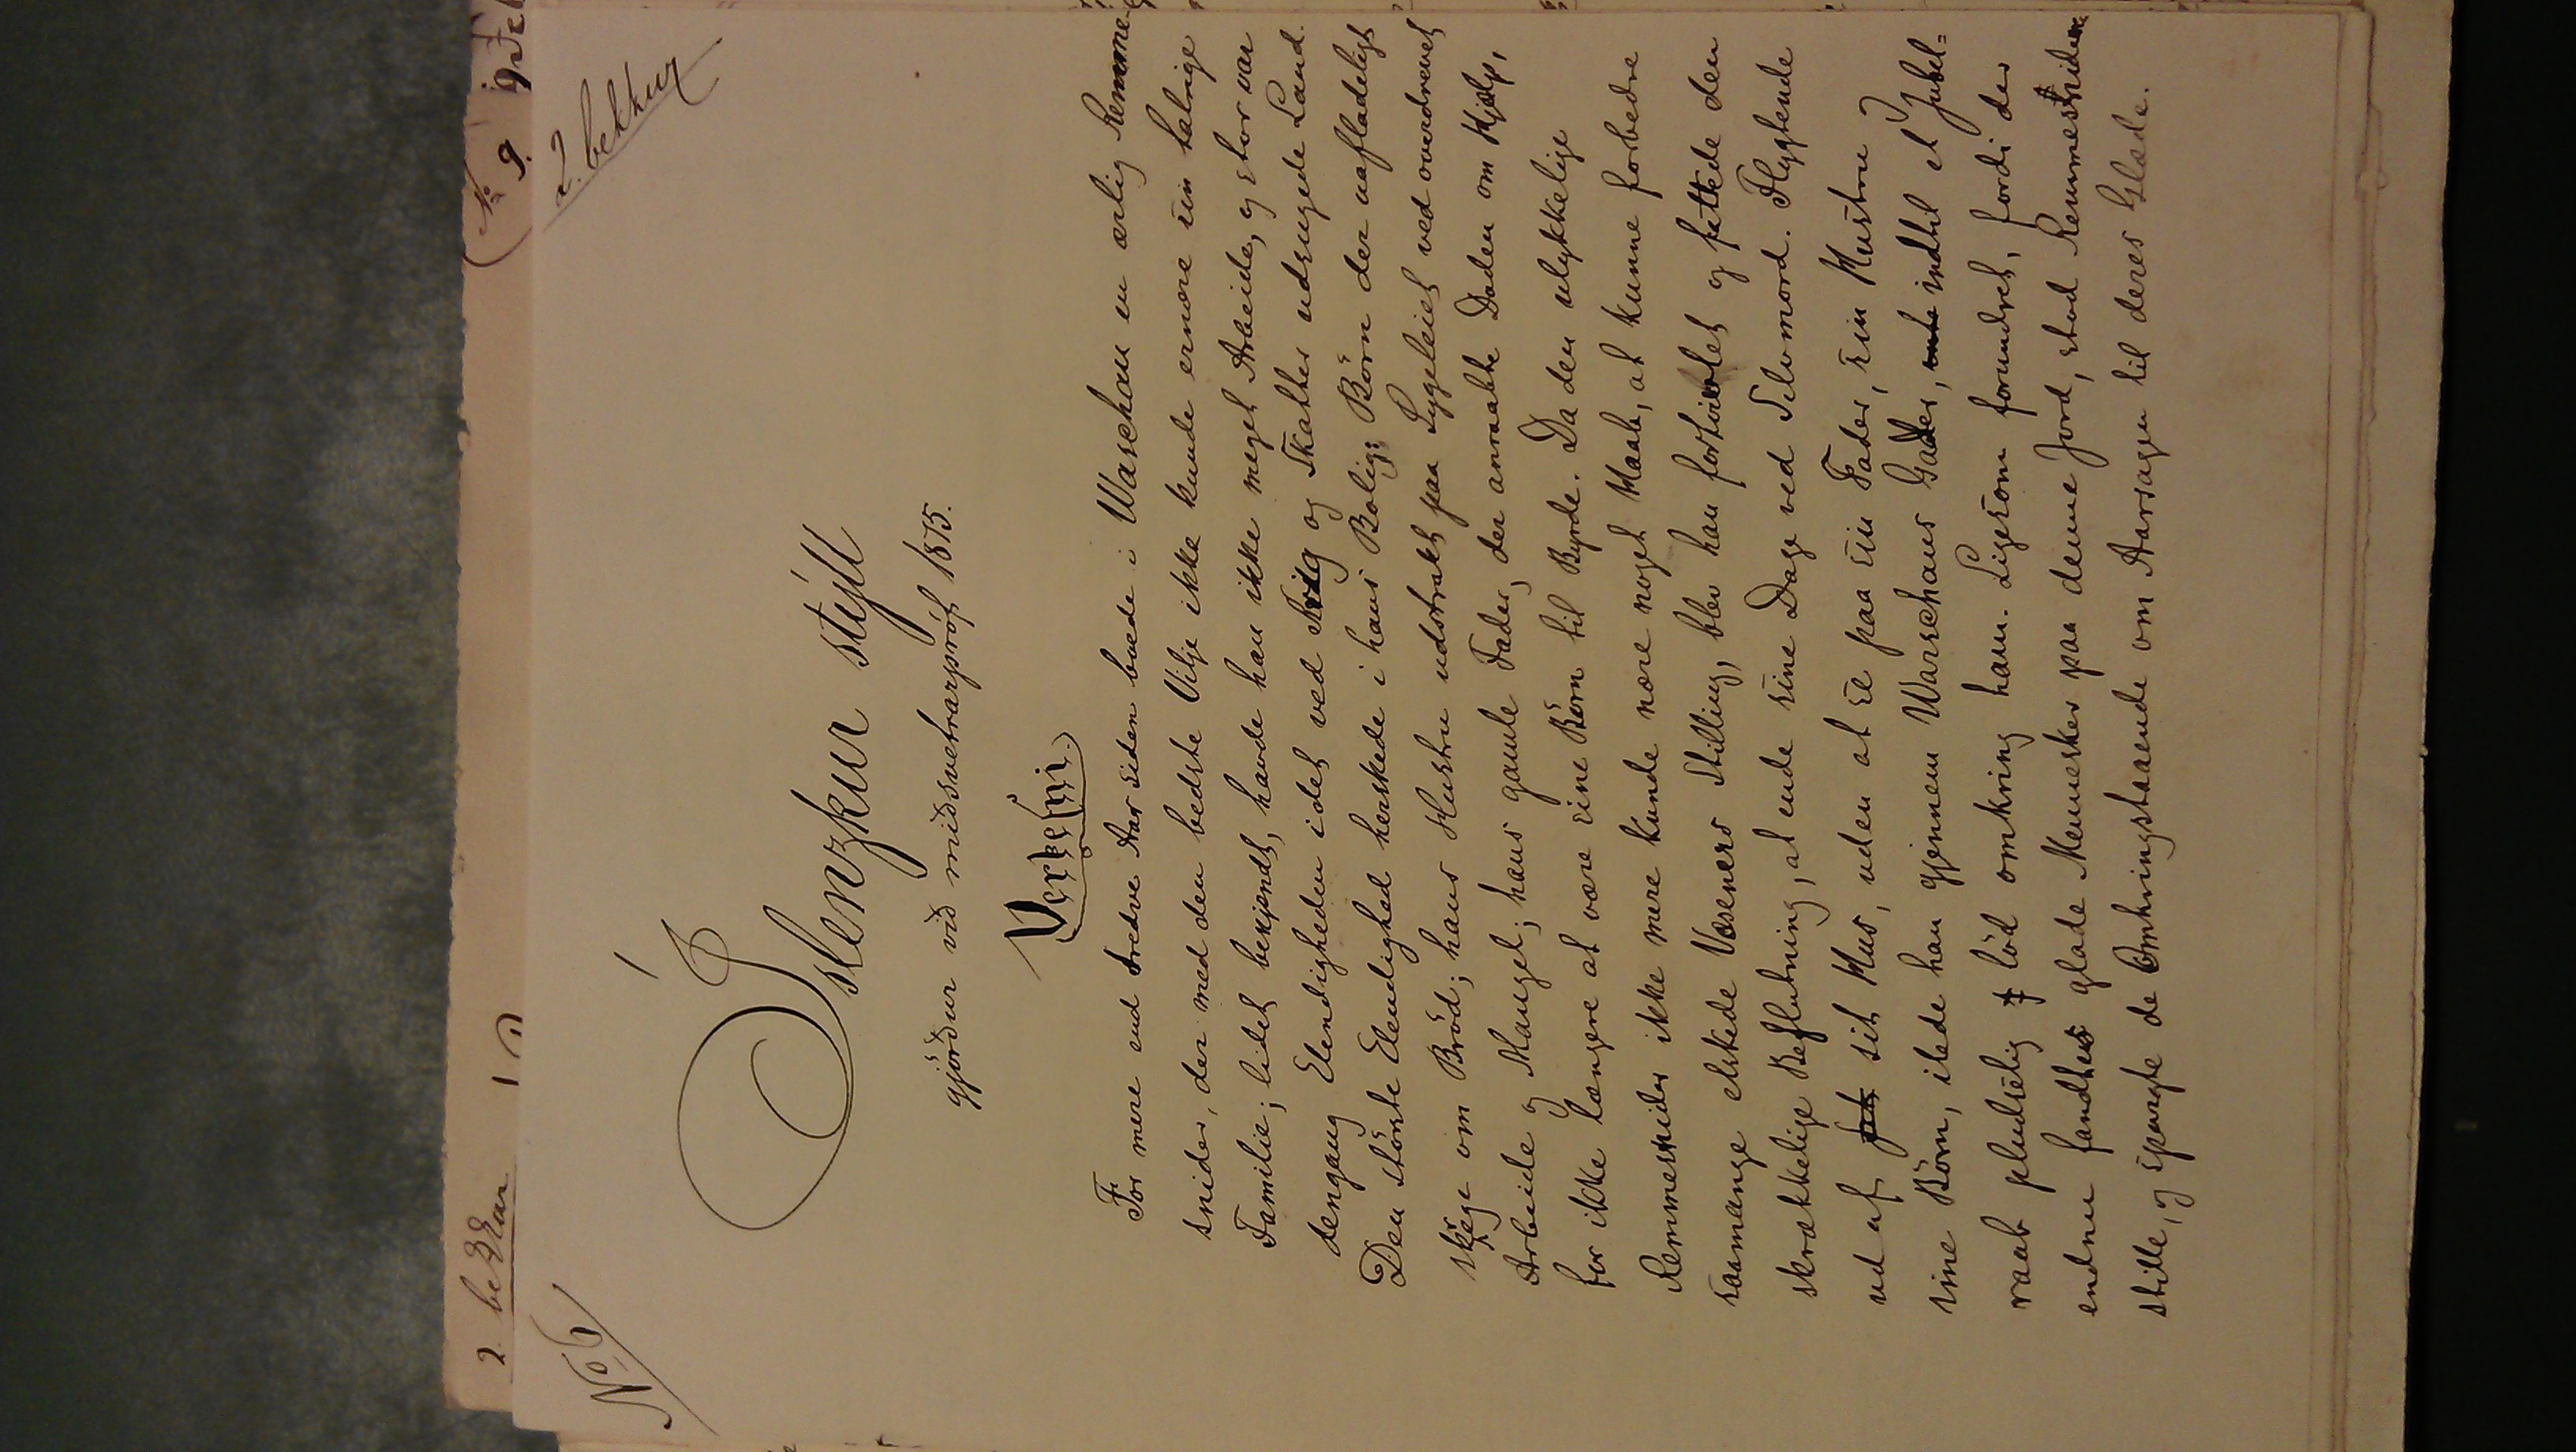 2. bekkur
No 6
2. bekkur
Íslenzkur stýll
gjörður við miðsvetrarpróf 1875.
Verkefni.
For mere end tredve Aar siden boede i Warschau en ærlig Remme-
snider, der med den bedste Vilje ikke kunde ernære sin talrige
Familie; lidet bekjendt, havde han ikke meget Arbeide, og stor var
dengang Elendigheden i det ved Krig og Skatter udsugede Land.
Den største Elendighed herskede i hans Bolig; Børn der uafladeligt
skrege om Brød; hans Hustru udstrakt paa Sygeleiet ved overdrevet
Arbeide og Mangel; hans gamle Fader, der anraabte Døden om Hjælp,
for ikke længere at være sine Børn til Byrde. Da den ulykkelige
Remmesnider ikke mere kunde nære noget Haab, at kunne forbedre
saamange elskede Væseners Stilling, blev han fortvivlet og fattede den
skrækkelige Beslutning, at ende sine Dage ved Selvmord. Flygtende
ud af sit Hus, uden at se paa sin Fader, sin Hustru og
sine Børn, ilede han gjennem Warschaus Gader, indtil et Jubel-
raab pludselig lød omkring ham. Ligesom forundret, fordi der
endnu fandtes glade Mennesker paa denne Jord, stod Remmesnideren
stille, og spurgte de Omkringstaaende om Aarsagen til deres Glæde.